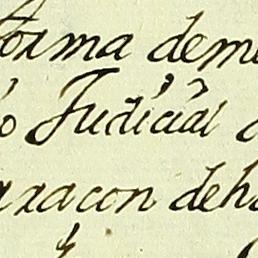 forma deme
o Judicial
axacon deha